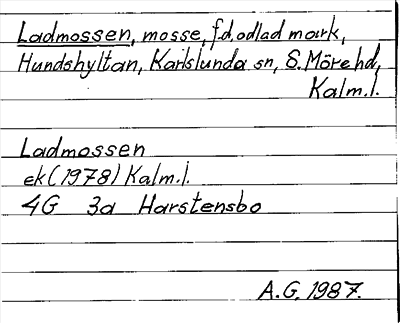 Ladmossen, mosse, f.d. odlad mark,
Hundshyltan, Karlslunda sn, S. Möre hd,
Kalm.l.
Ladmossen
ek (1978) Kalm.l.
4G 3a Harstensbo
A.G. 1987.